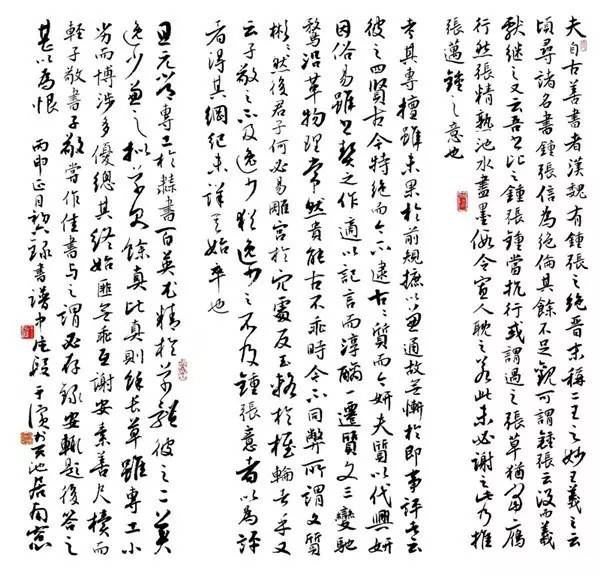 夫自古善書者漢魏有鍾張之絕晉末稱二王之妙王羲之云
頃尋諸名書鍾張信為絕倫其餘不足觀可謂鍾張云沒而羲
獻繼之又云吾書比之鍾張鍾當抗行或謂過之張草猶當雁
行然張精熟池水盡墨假令寡人耽之若此未必謝之此乃推
張邁鍾之意也
考其專擅雖未果於前規摭以兼通故無慚於即事評者云
彼之四賢古今特絕而今不逮古古質而今妍夫質以代興妍
因俗易雖書契之作適以記言而淳醨一遷質文三變馳
騖沿革物理常然貴能古不乖時今不同弊所謂文質
彬彬然後君子何必易雕宮於穴處反玉輅於椎輪者乎又
云子敬之不及逸少猶逸少之不及鍾張意者以為評
者得其綱紀未詳其始卒也
且元常專工於隸書百英尤精於草體彼之二美
逸少兼之擬草則餘真比真則餘長草雖專工小
劣而博涉多優總其終始匪無乖互謝安素善尺牘而
輕子敬書子敬嘗作佳書與之謂必存錄安輒題後答之
甚以為恨 丙申正月初六錄書譜中段